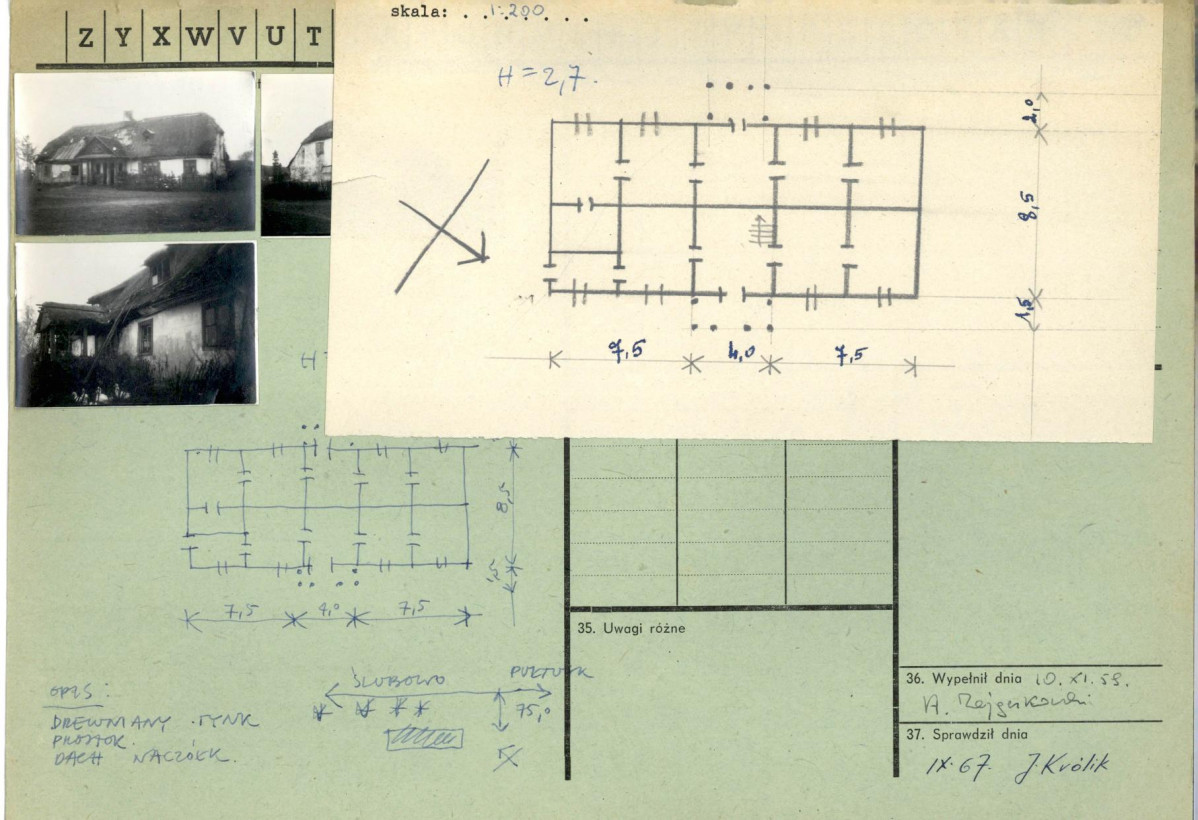 Z Y X W V U T
skala: . . 1:200 . . .
H = 2,7.
2,0
8,5
1,5
7,5 4,0 7,5
H
8,5
1,5
7,5 4,0 7,5
35. Uwagi różne
OPIS:
DREWNIANY . TYNK
PROSTOK.
DACH NACZÓŁK.
ŚLUBOWO PUŁTUSK
75,0
36. Wypełnił dnia 10. XI. 59.
37. Sprawdził dnia
IX. 67. J. Królik